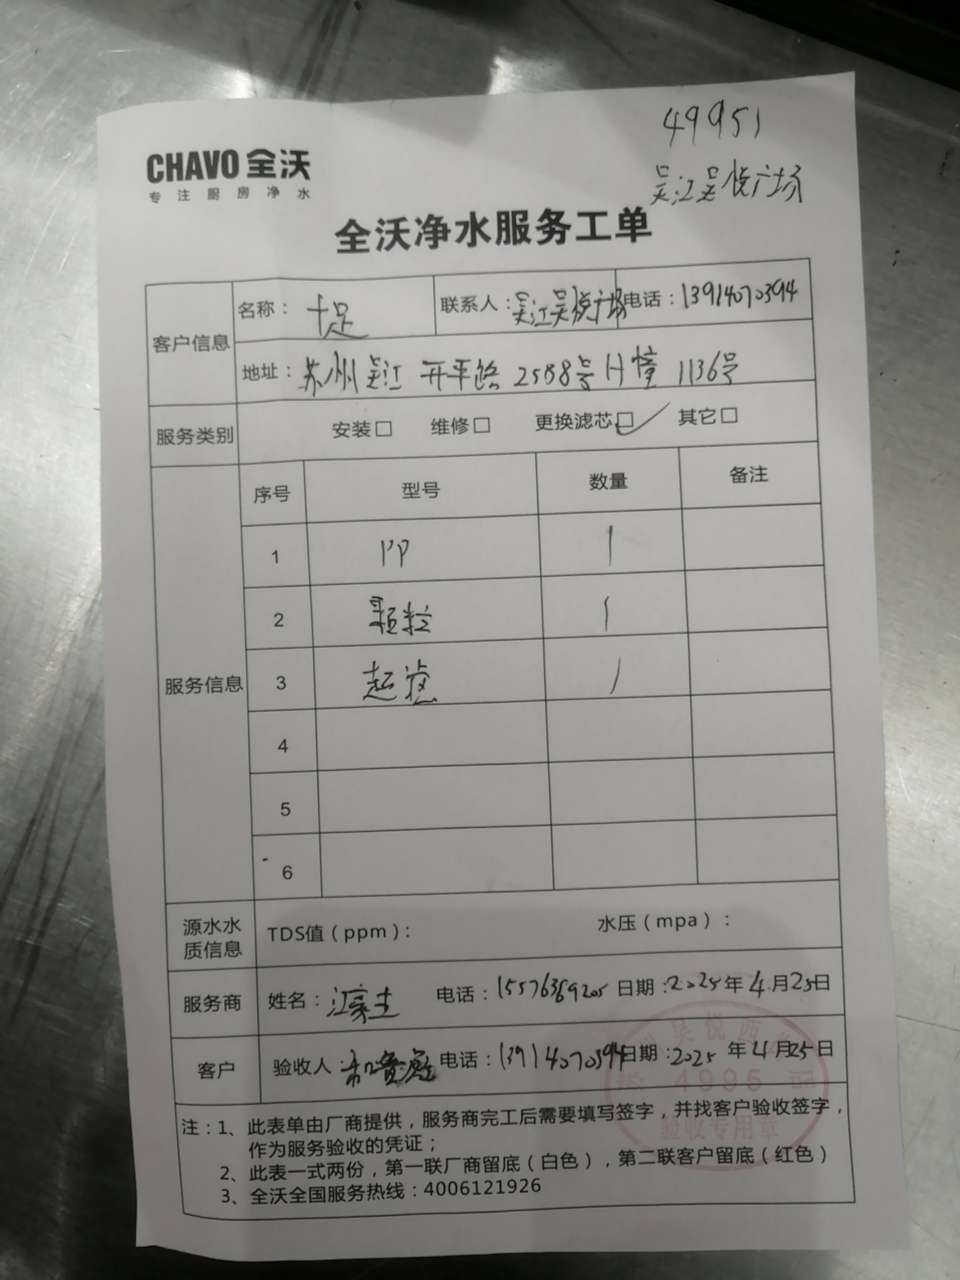 49951
吴江吴悦广场
CHAVO 全沃
专注厨房净水
全沃净水服务工单
客户信息
名称： 十足 联系人：吴江吴悦广场 电话：13914070394
地址： 苏州吴江 开平路 2588号 H幢 1136号
服务类别 安装□ 维修□ 更换滤芯□✓ 其它□
服务信息
序号 型号 数量 备注
1 PP 1
2 颗粒 1
3 超滤 1
4
5
6
源水水质信息 TDS值（ppm）： 水压（mpa）：
服务商 姓名： 电话：15576369205 日期：2025年4月25日
客户 验收人： 电话：13914070394 日期：2025年4月25日
4995
验收专用章
注：1、此表单由厂商提供，服务商完工后需要填写签字，并找客户验收签字，
作为服务验收的凭证；
2、此表一式两份，第一联厂商留底（白色），第二联客户留底（红色）
3、全沃全国服务热线：4006121926